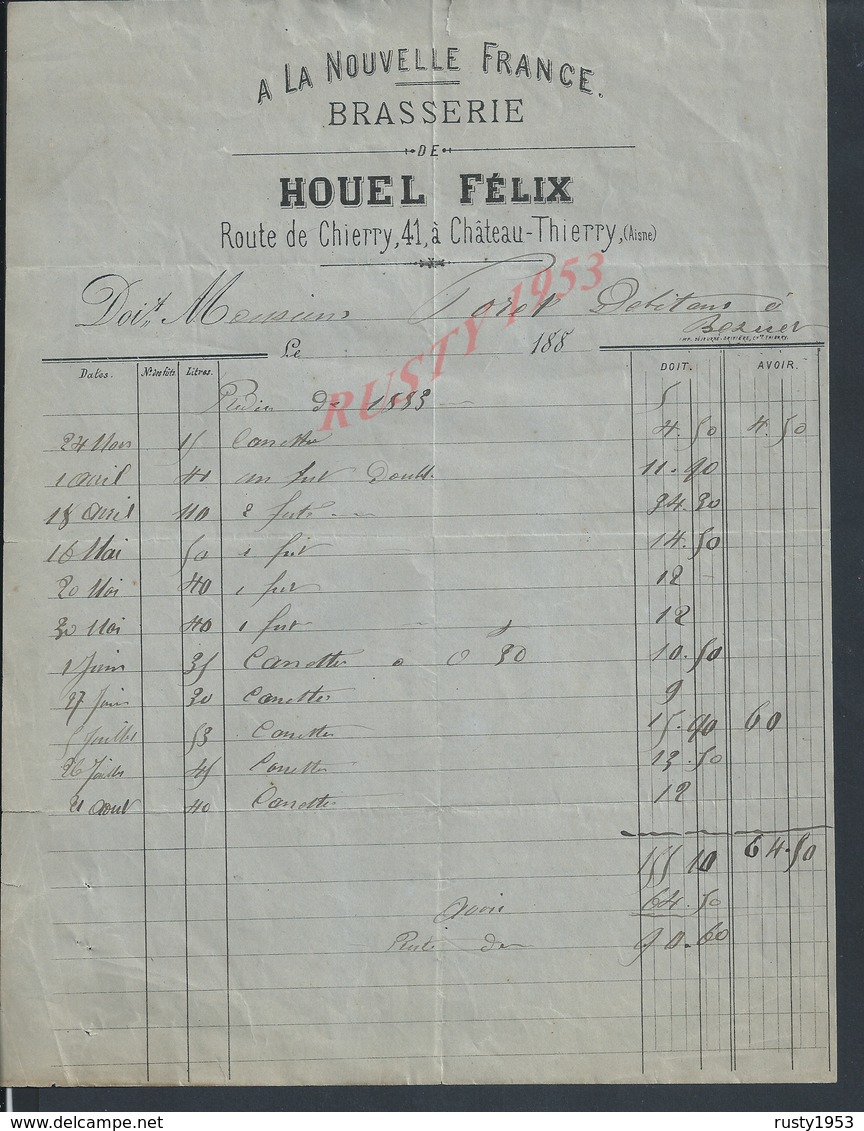 A LA NOUVELLE FRANCE.
BRASSERIE
DE
HOUEL FÉLIX
Route de Chierry, 41, à Château-Thierry, (Aisne)
Doit Monsieur Debitant à
Le 188
Dates. Nos des fûts Litres. DOIT. AVOIR.
de 1883 5
24 Mars 15 Canettes 4.50 4.50
1 avril 41 un fut Double 11.90
18 avril 110 2 futs 34.30
16 Mai 50 1 fut 14.50
20 Mai 40 1 fut 12
30 Mai 40 1 fut 12
1 Juin 35 Canettes a 0 30 10.50
27 Juin 30 Canettes 9
5 Juillet 53 Canettes 15.90 60
26 Juillet 45 Canettes 13.50
21 Aout 40 Canettes 12
155 10 64.50
Avoir 64.50
Reste du 90.60
RUSTY 1953
rusty1953